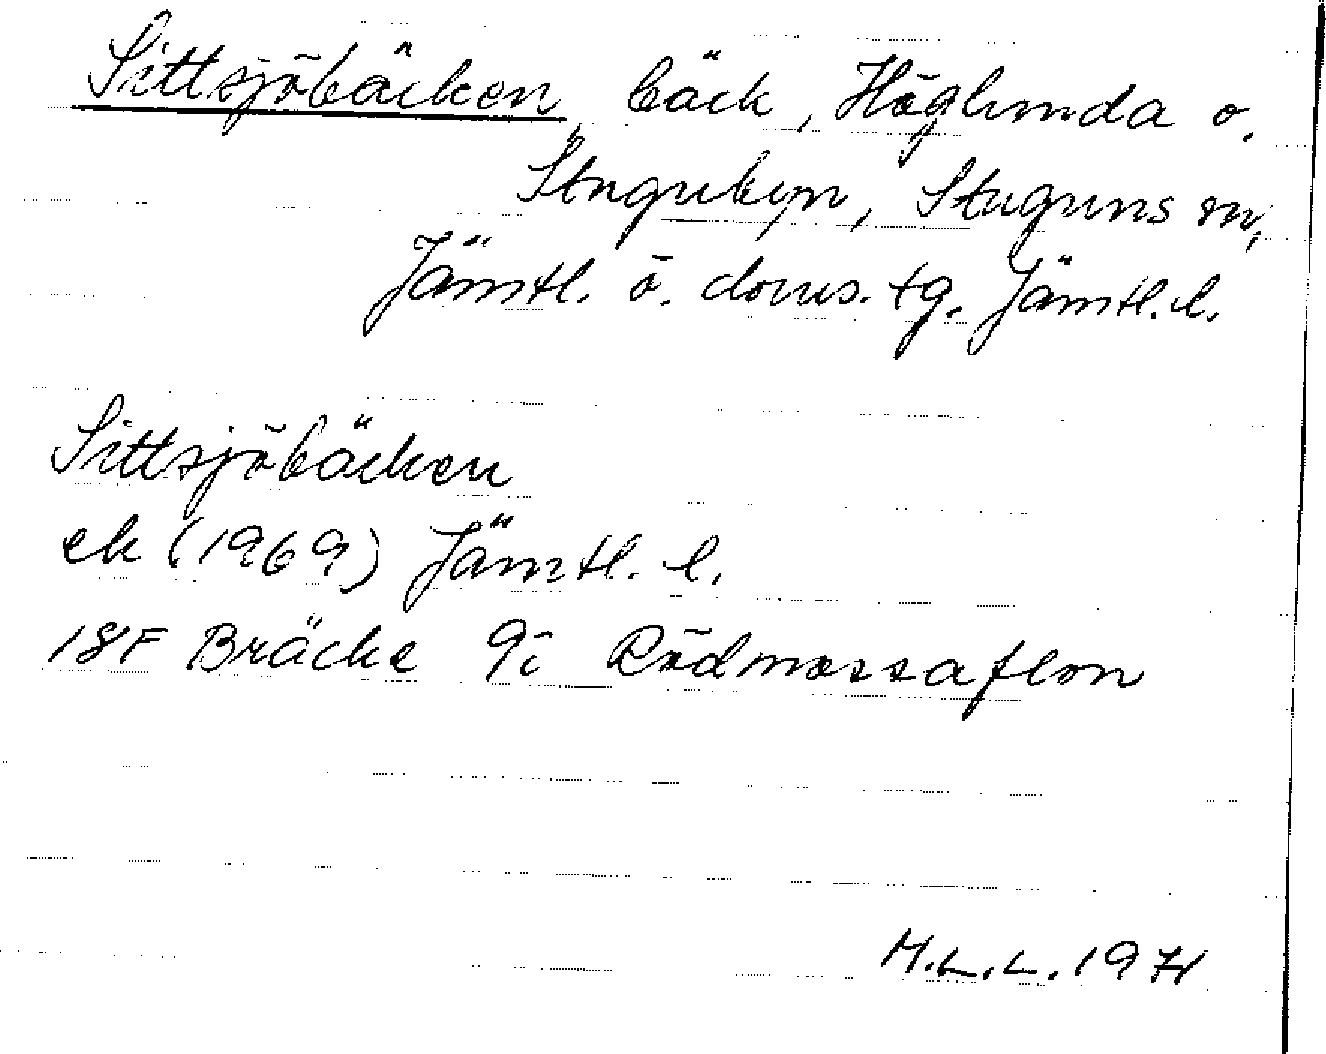 Sittsjöbäcken, bäck, Höglunda o.
Stugubyn, Stuguns sn,
Jämtl. ö. doms. tg. Jämtl. l.
Sittsjöbäcken
ek (1969) Jämtl. l.
18F Bräcke 9i Rödmossaflon
M.L.L. 1971